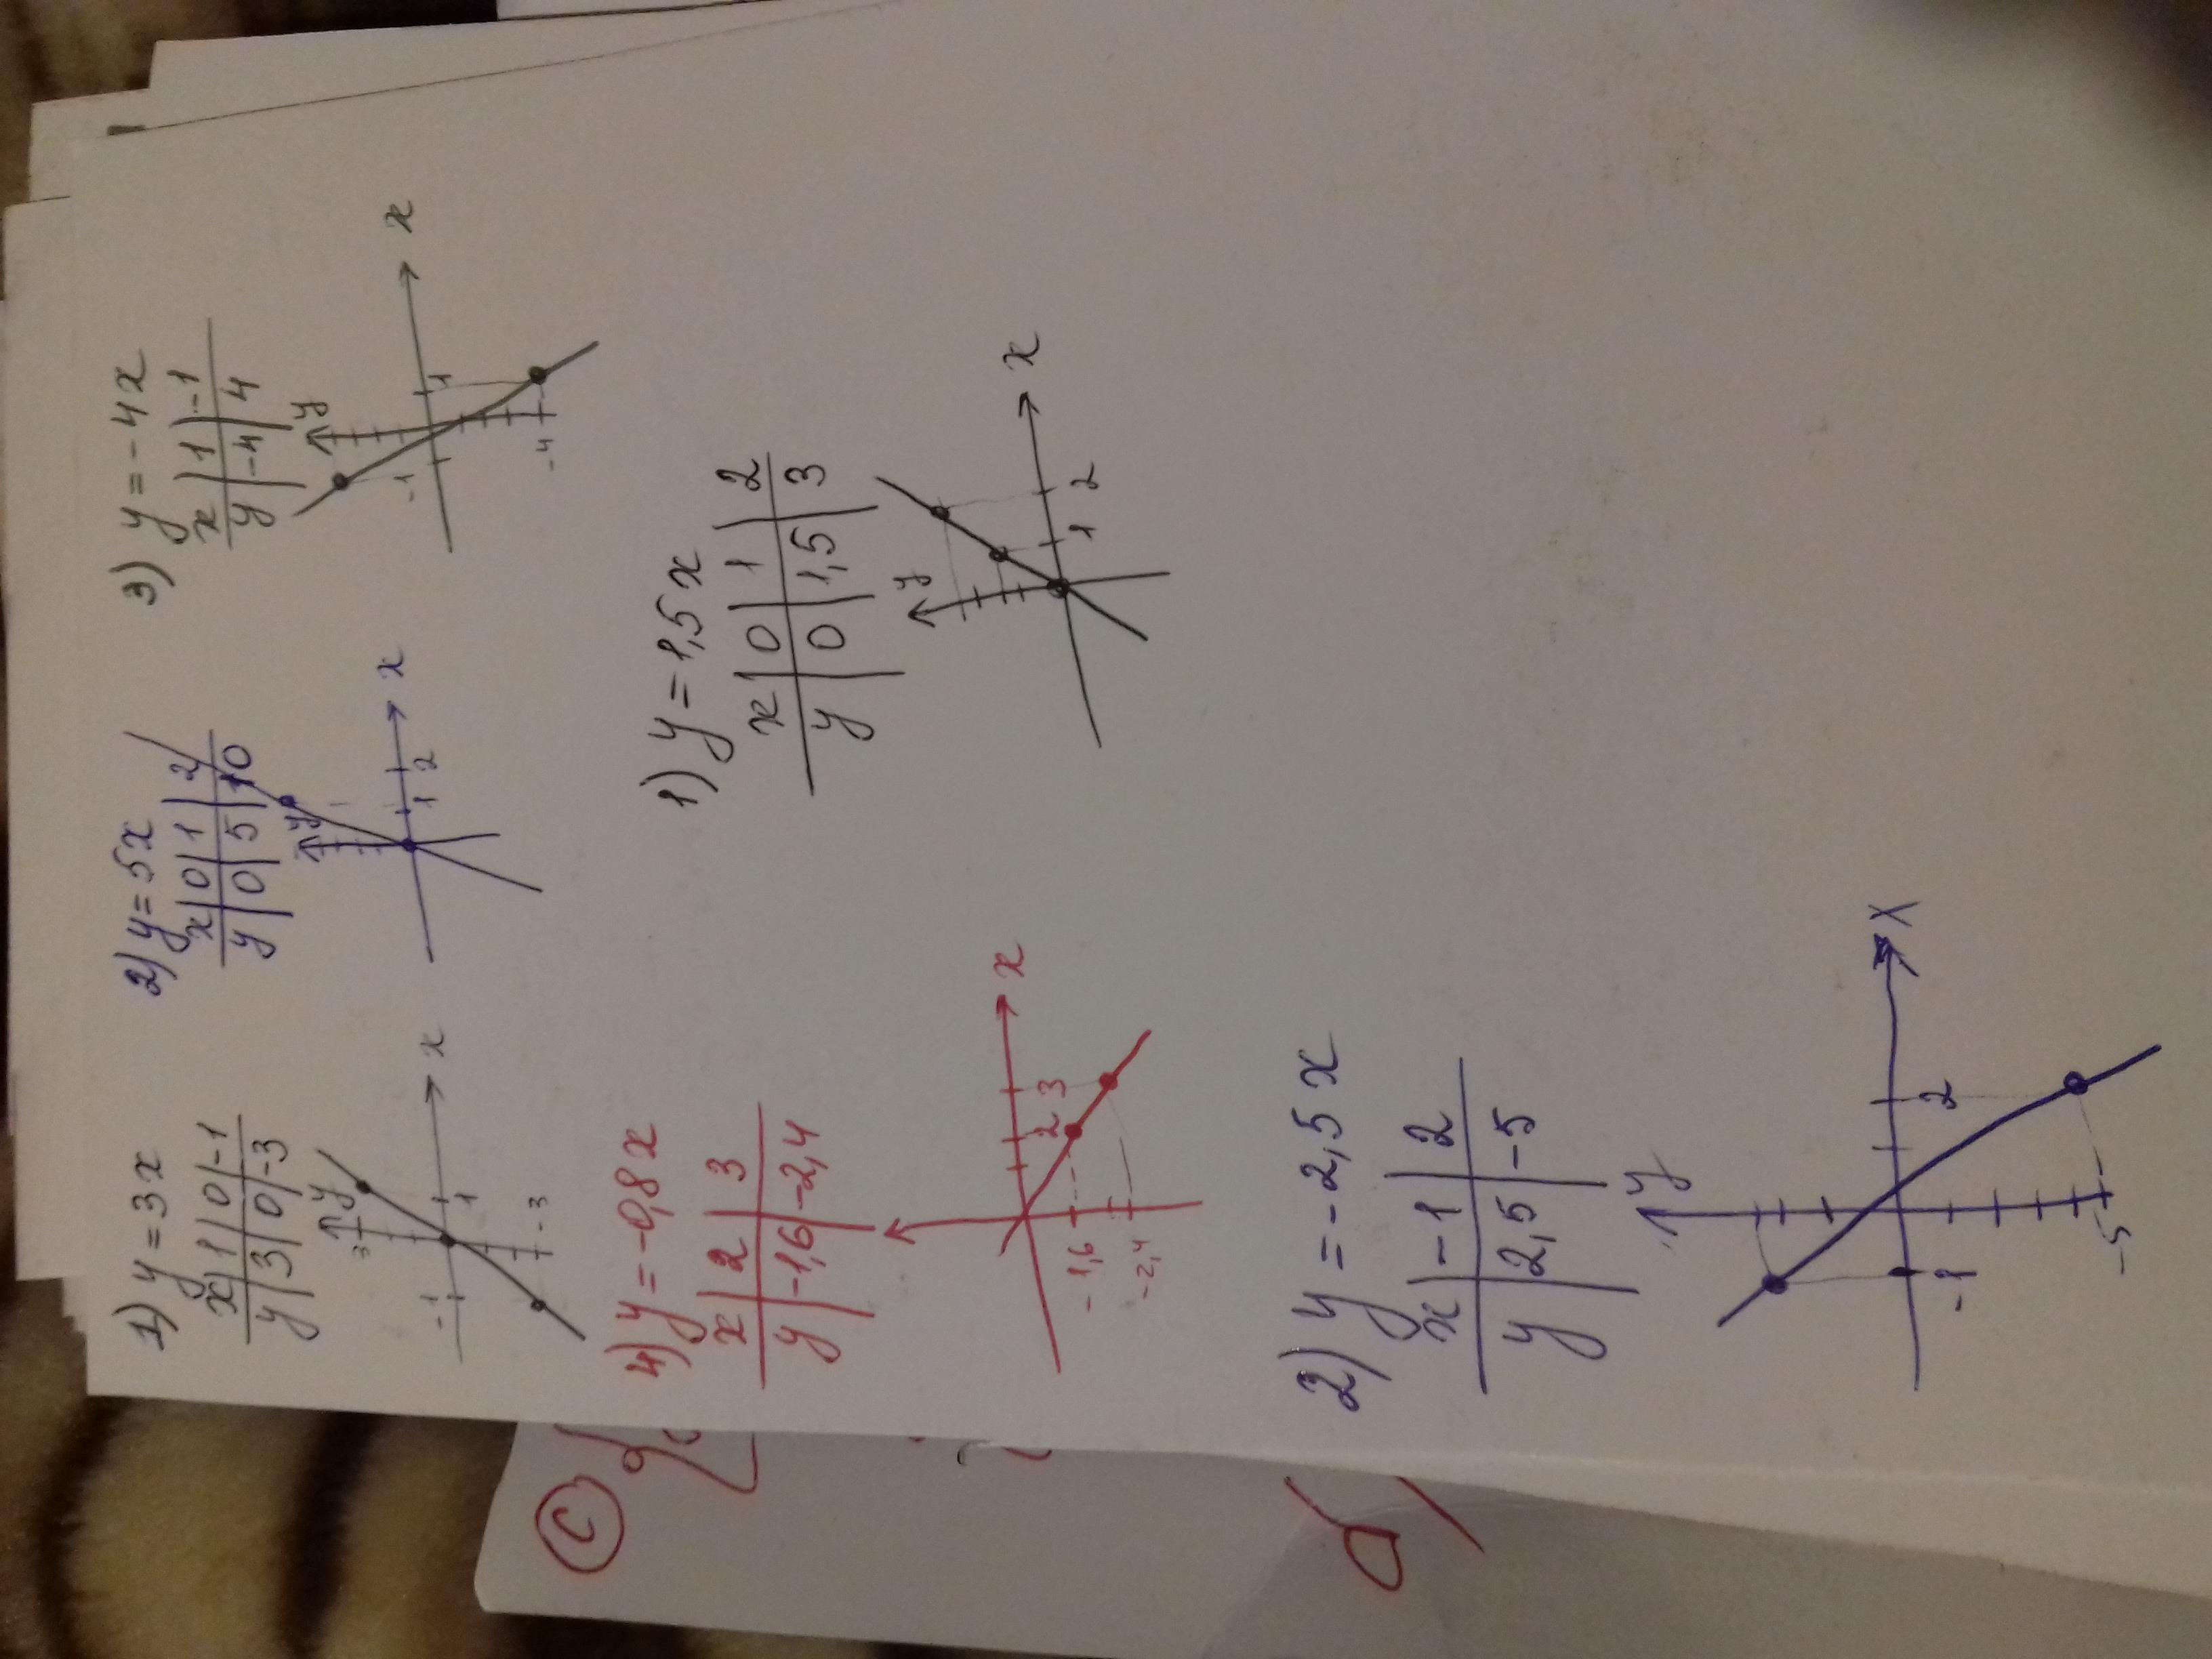 1) y = 3x
x | 1 | 0 | -1
y | 3 | 0 | -3
y
3
x
-1
1
-3
2) y = 5x
x | 0 | 1 | 2
y | 0 | 5 | 10
y
x
1
2
3) y = -4x
x | 1 | -1
y | -4 | 4
y
x
-1
1
-4
4) y = -0,8x
x | 2 | 3
y | -1,6 | -2,4
x
2
3
-1,6
-2,4
1) y = 1,5x
x | 0 | 1 | 2
y | 0 | 1,5 | 3
y
x
1
2
2) y = -2,5x
x | -1 | 2
y | 2,5 | -5
y
x
-1
2
-5
C